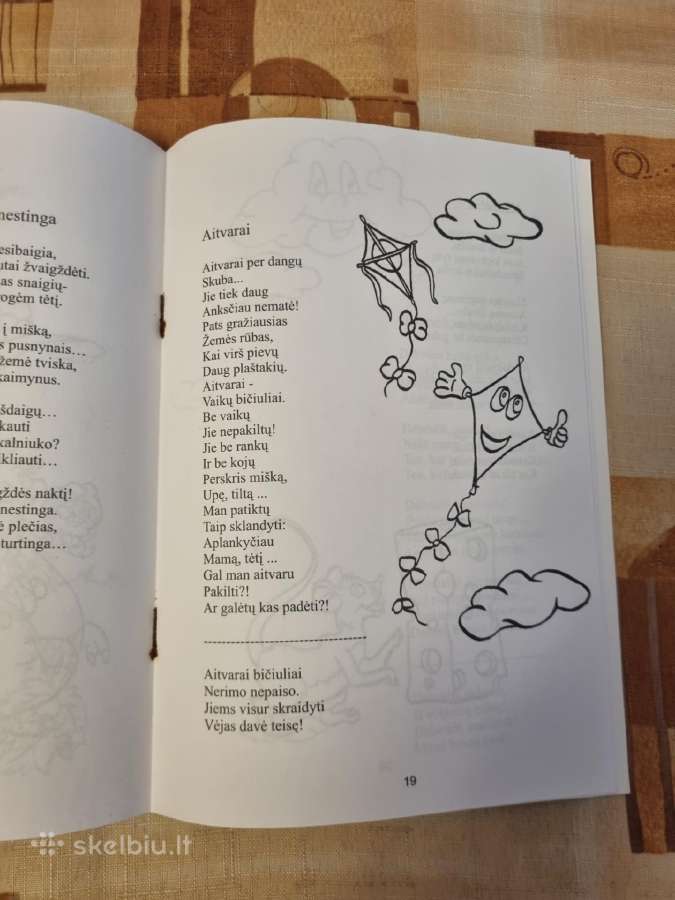 nestinga
esibaigia,
utai žvaigždėti.
as snaigių-
rogėm tėtį.
į mišką,
s pusnynais...
žemė tviska,
kaimynus.
šdaigų...
kauti
kalniuko?
ikliauti...
gždės naktį!
nestinga.
ė plečias,
turtinga...
Aitvarai
Aitvarai per dangų
Skuba...
Jie tiek daug
Anksčiau nematė!
Pats gražiausias
Žemės rūbas,
Kai virš pievų
Daug plaštakių.
Aitvarai -
Vaikų bičiuliai.
Be vaikų
Jie nepakiltų!
Jie be rankų
Ir be kojų
Perskris mišką,
Upę, tiltą ...
Man patiktų
Taip sklandyti:
Aplankyčiau
Mamą, tėtį ...
Gal man aitvaru
Pakilti?!
Ar galėtų kas padėti?!
Aitvarai bičiuliai
Nerimo nepaiso.
Jiems visur skraidyti
Vėjas davė teisę!
19
skelbiu.lt